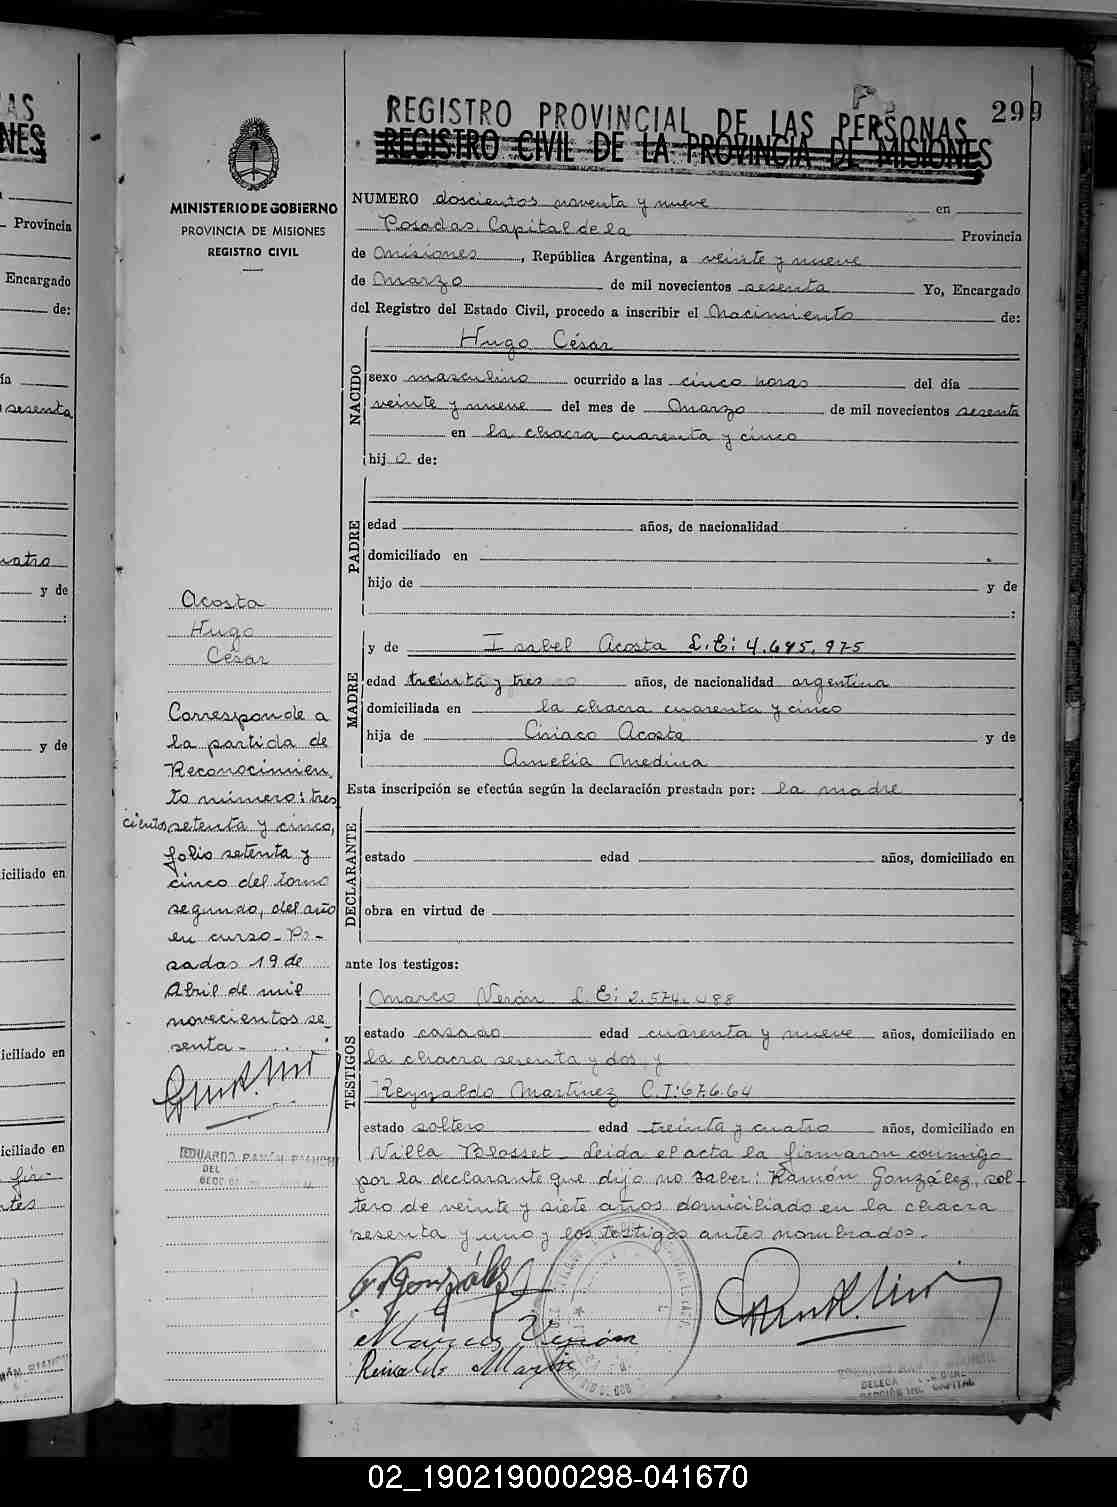 REGISTRO PROVINCIAL DE LAS PERSONAS
REGISTRO CIVIL DE LA PROVINCIA DE MISIONES
299
MINISTERIO DE GOBIERNO
PROVINCIA DE MISIONES
REGISTRO CIVIL
NUMERO doscientos noventa y nueve en
Posadas, Capital de la Provincia
de Misiones, República Argentina, a veinte y nueve
de Marzo de mil novecientos sesenta Yo, Encargado
del Registro del Estado Civil, procedo a inscribir el Nacimiento de:
NACIDO
Hugo César
sexo masculino ocurrido a las cinco horas del día
veinte y nueve del mes de Marzo de mil novecientos sesenta
en la chacra cuarenta y cinco
hijo de:
PADRE
edad años, de nacionalidad
domiciliado en
hijo de y de
:
MADRE
y de Isabel Acosta L.E: 4.695.975
edad treinta y tres años, de nacionalidad argentina
domiciliada en la chacra cuarenta y cinco
hija de Ciriaco Acosta y de
Amelia Medina
Esta inscripción se efectúa según la declaración prestada por: la madre
DECLARANTE
estado edad años, domiciliado en
obra en virtud de
ante los testigos:
TESTIGOS
Marco Verón L.E: 2.574.088
estado casado edad cuarenta y nueve años, domiciliado en
la chacra sesenta y dos y
Reynaldo Martinez C.I: 67.6.64
estado soltero edad treinta y cuatro años, domiciliado en
Villa Blosset. Leida el acta la firmaron conmigo
por la declarante que dijo no saber: Ramón González, sol-
tero de veinte y siete años domiciliado en la chacra
sesenta y uno y los testigos antes nombrados.
R González
Marcos Verón
Reinaldo Martinez
Acosta
Hugo
César
Corresponde a
la partida de
Reconocimien
to número: tres
cientos setenta y cinco,
folio setenta y
cinco del tomo
segundo, del año
en curso - Po-
sadas 19 de
Abril de mil
novecientos se-
senta -
EDUARDO RAMÓN BIANCHI
DEL
SECCION CAPITAL
Provincia
Encargado
de:
sesenta
y de
y de
iciliado en
iciliado en
iciliado en
02_190219000298-041670